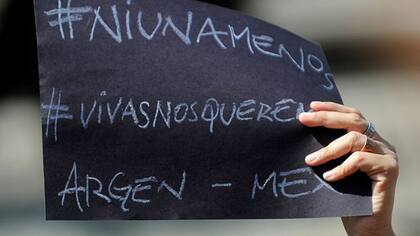 #NIUNAMENOS
#VIVASNOSQUEREN
ARGEN - MEX